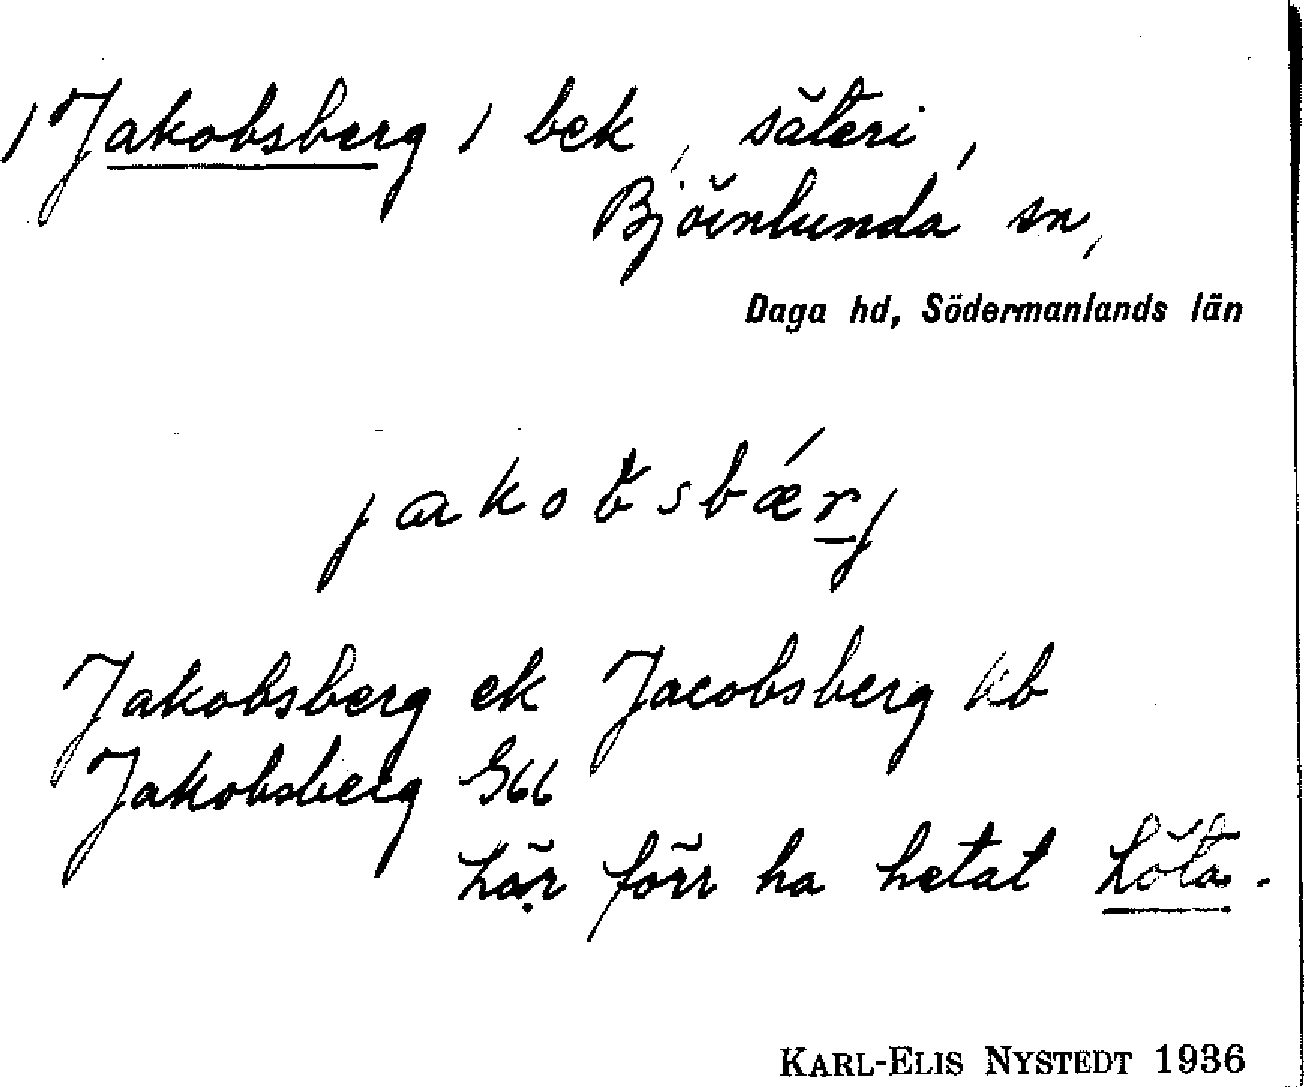 / Jakobsberg / bek, säteri,
Björnlunda sn,
Daga hd, Södermanlands län
jakobsbǽrj
Jakobsberg ek Jacobsberg kb
Jakobsberg G66
Lär förr ha hetat Löta.
KARL-ELIS NYSTEDT 1936